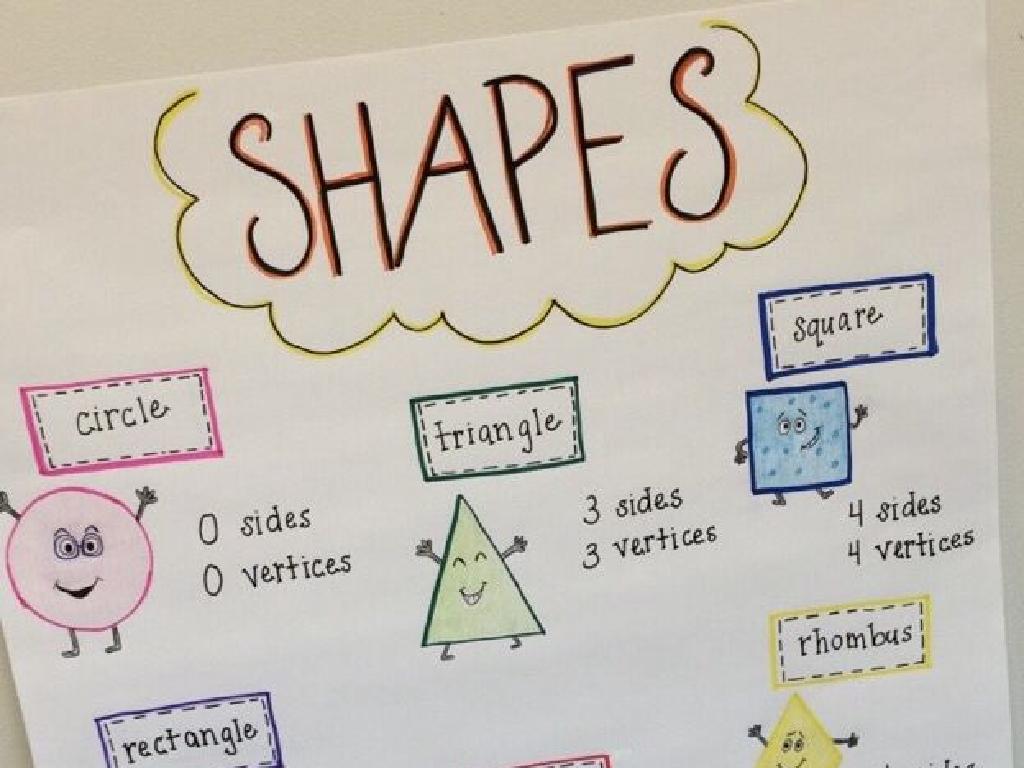 SHAPES
square
circle
triangle
0 sides
0 vertices
3 sides
3 vertices
4 sides
4 vertices
rhombus
rectangle